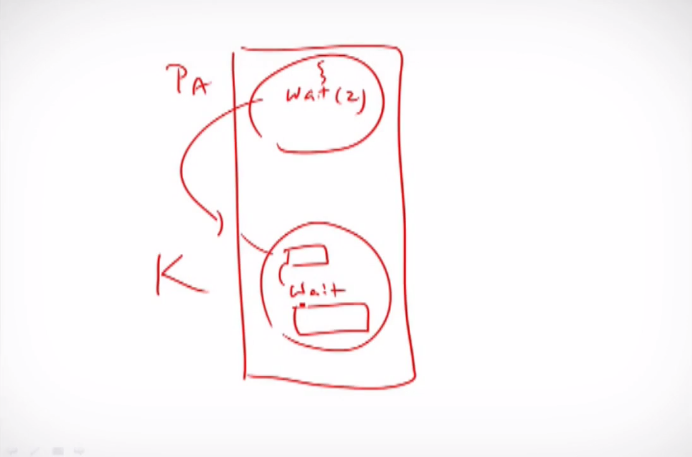 PA
wait(2)
K
wait